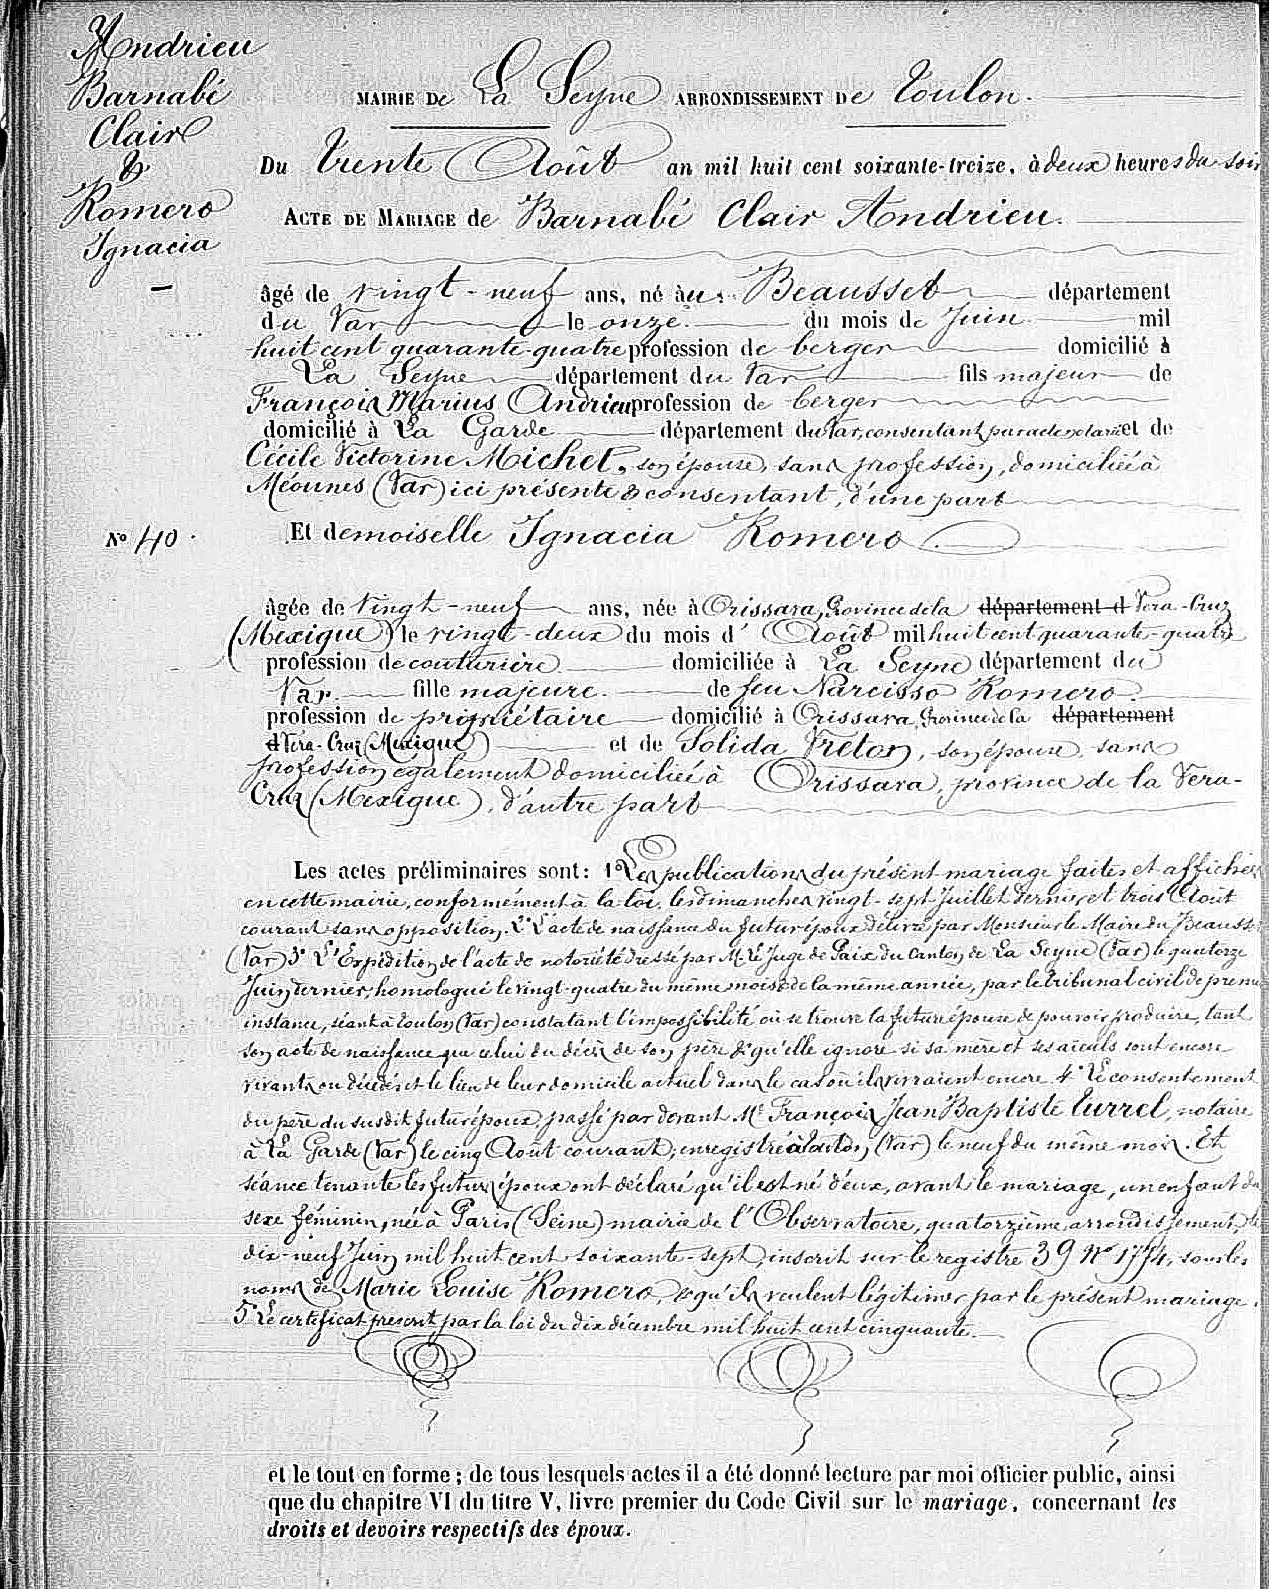 Andrieu
Barnabé
Clair
&
Romero
Ignacia
MAIRIE De La Seyne ARRONDISSEMENT De Toulon.
Du trente Août an mil huit cent soixante-treize, à deux heures du soir
ACTE DE MARIAGE de Barnabé Clair Andrieu.
âgé de vingt-neuf ans, né àu Beausset département
du Var le onze du mois de Juin mil
huit cent quarante-quatre profession de berger domicilié à
La Seyne département du Var fils majeur de
François Marius Andrieu profession de berger
domicilié à La Garde département du Var, consentant par acte notarié et de
Cécile Victorine Michel, son épouse, sans profession, domiciliée à
Méounes (Var) ici présente & consentant, d'une part
N° 40.
Et demoiselle Ignacia Romero
âgée de vingt-neuf ans, née à Orissara, Province de la département d Vera-Cruz
(Mexique) le vingt-deux du mois d' Août mil huit cent quarante-quatre
profession de couturière domiciliée à La Seyne département du
Var fille majeure de feu Narcisso Romero.
profession de propriétaire domicilié à Orissara, Province de la département
d Vera-Cruz (Mexique) et de Solida Treton, son épouse, sans
profession également domiciliée à Orissara, province de la Vera-
Cruz (Mexique), d'autre part
Les actes préliminaires sont: 1° Les publications du présent mariage faites et affichées
en cette mairie, conformément à la loi, les dimanches vingt-sept Juillet dernier et trois Août
courant sans opposition. 2° L'acte de naissance du futur époux délivré par Monsieur le Maire du Beausset
(Var) 3° L'Expédition de l'acte de notoriété dressé par M. le Juge de Paix du Canton de La Seyne (Var) le quatorze
Juin dernier, homologué le vingt-quatre du même mois & de la même année, par le tribunal civil de première
instance, séant à Toulon (Var) constatant l'impossibilité où se trouve la future épouse de pouvoir produire, tant
son acte de naissance que celui du décès de son père & qu'elle ignore si sa mère et ses aïeuls sont encore
vivants ou décédés et le lieu de leur domicile actuel dans le cas où ils vivraient encore. 4° Le consentement
du père du susdit futur époux, passé par devant Me François Jean Baptiste Turrel, notaire
à La Garde (Var) le cinq Août courant, enregistré à Toulon (Var) le neuf du même mois. Et
séance tenante les futurs époux ont déclaré qu'il est né d'eux, avant le mariage, un enfant du
sexe féminin, née à Paris (Seine) mairie de l'Observatoire, quatorzième arrondissement, le
dix-neuf Juin mil huit cent soixante-sept, inscrit sur le registre 39 N° 1774, sous les
noms de Marie Louise Romero, & qu'ils veulent légitimer par le présent mariage.
5° Le certificat prescrit par la loi du dix décembre mil huit cent cinquante.
et le tout en forme ; de tous lesquels actes il a été donné lecture par moi officier public, ainsi
que du chapitre VI du titre V, livre premier du Code Civil sur le mariage, concernant les
droits et devoirs respectifs des époux.